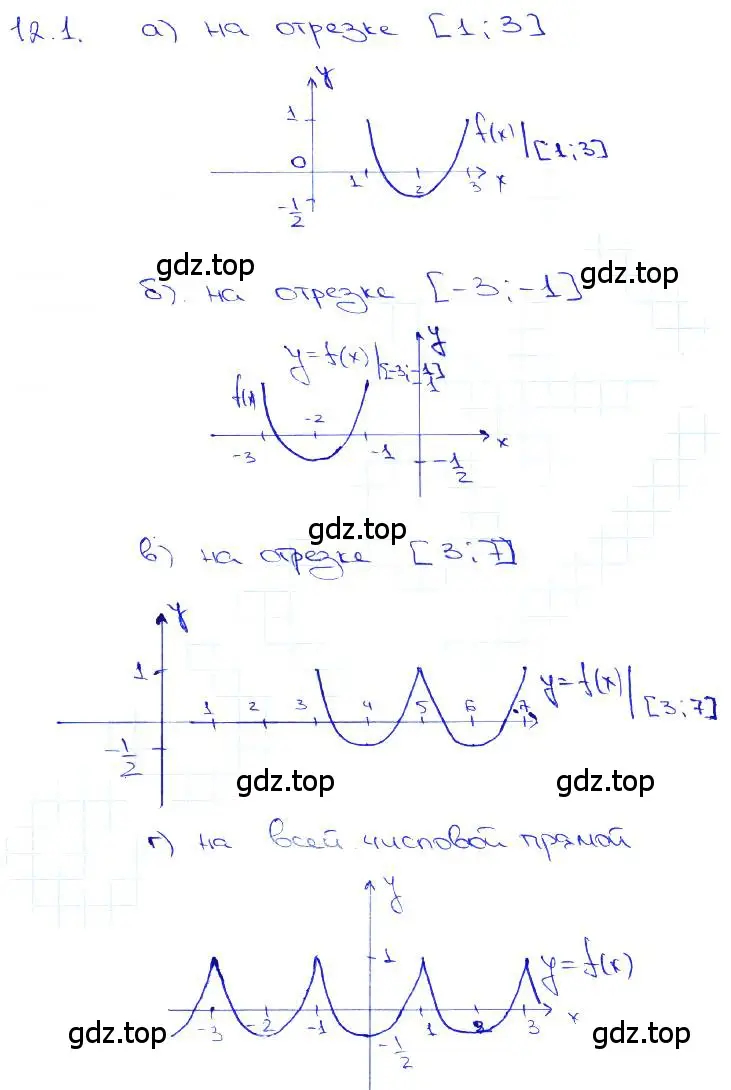 12.1. а) на отрезке [1; 3]
y
1
f(x)|[1;3]
0
1 2 3 x
-1/2
gdz.top
б). на отрезке [-3; -1]
gdz.top
y
y=f(x)|[-3;-1]
1
f(x)
-2
-3 -1 x
-1/2
gdz.top
в) на отрезке [3; 7]
y
1
y=f(x)|[3;7]
1 2 3 4 5 6 7
-1/2
gdz.top gdz.top
г) на всей числовой прямой
y
1
y=f(x)
-3 -2 -1 1 2 3 x
-1/2
gdz.top gdz.top